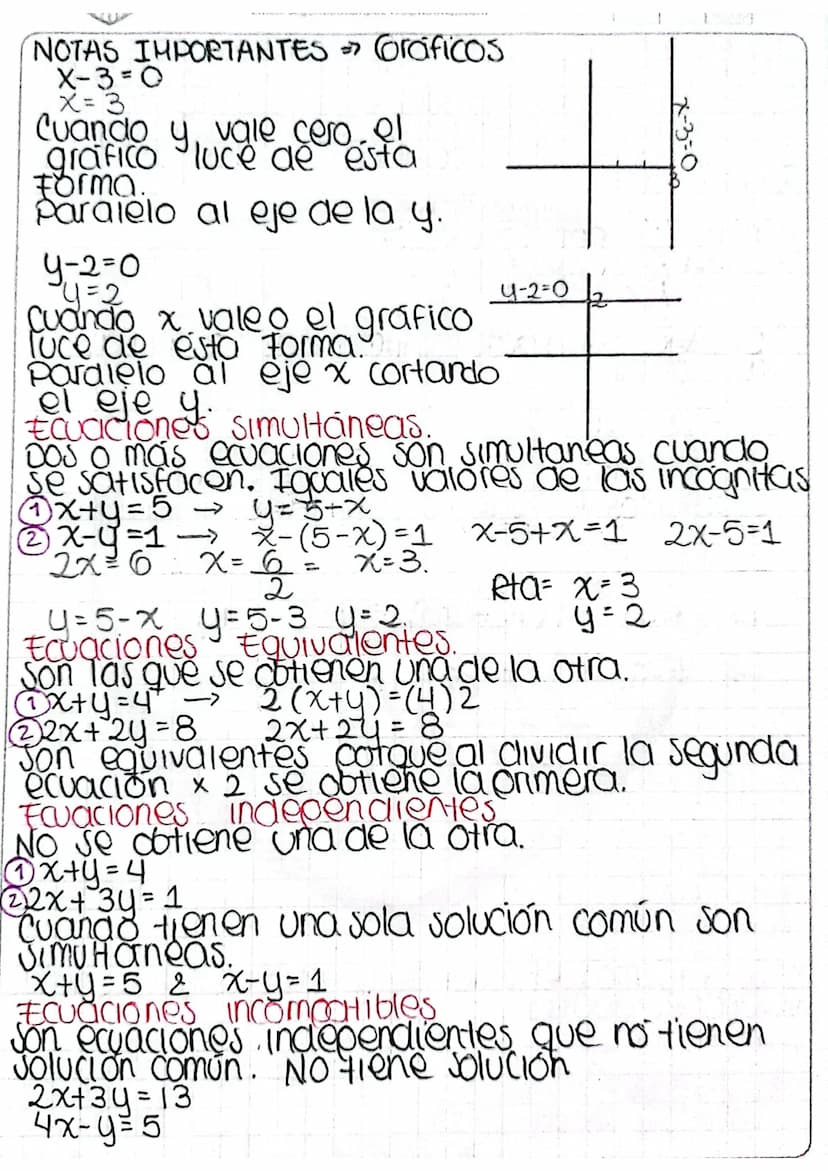 NOTAS IMPORTANTES → Gráficos
x-3=0
x=3
Cuando y vale cero el
gráfico luce de esta
forma.
Paralelo al eje de la y.
x-3=0
3
y-2=0
y=2
Cuando x vale 0 el gráfico
luce de esta forma.
Paralelo al eje x cortando
el eje y.
y-2=0
2
Ecuaciones simultáneas.
Dos o más ecuaciones son simultaneas cuando
se satisfacen. Iguales valores de las incógnitas
① x+y=5 → y=5+x
② x-y=1 → x-(5-x)=1 x-5+x=1 2x-5=1
2x=6 x=6/2= x=3.
Rta= x=3
y=2
y=5-x y=5-3 y=2
Ecuaciones Equivalentes.
Son las que se obtienen una de la otra.
① x+y=4 → 2(x+y)=(4)2
② 2x+2y=8 2x+2y=8
Son equivalentes porque al dividir la segunda
ecuación x 2 se obtiene la primera.
Ecuaciones independientes
No se obtiene una de la otra.
① x+y=4
② 2x+3y=1
Cuando tienen una sola solución común son
simultáneas.
x+y=5 & x-y=1
Ecuaciones incompatibles
Son ecuaciones independientes que no tienen
solución común. No tiene solución
2x+3y=13
4x-y=5